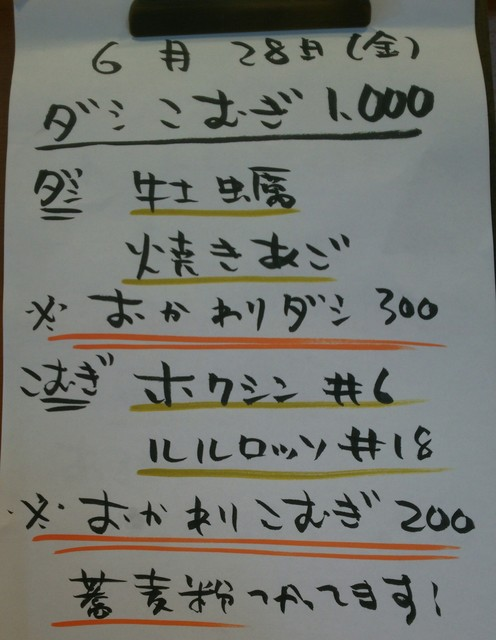 6月28日(金)
ダシこむぎ 1,000
ダシ 牡蠣
焼きあご
※おかわりダシ 300
こむぎ ホクシン#6
ルルロッソ#18
※おかわりこむぎ 200
蕎麦粉つかってます!